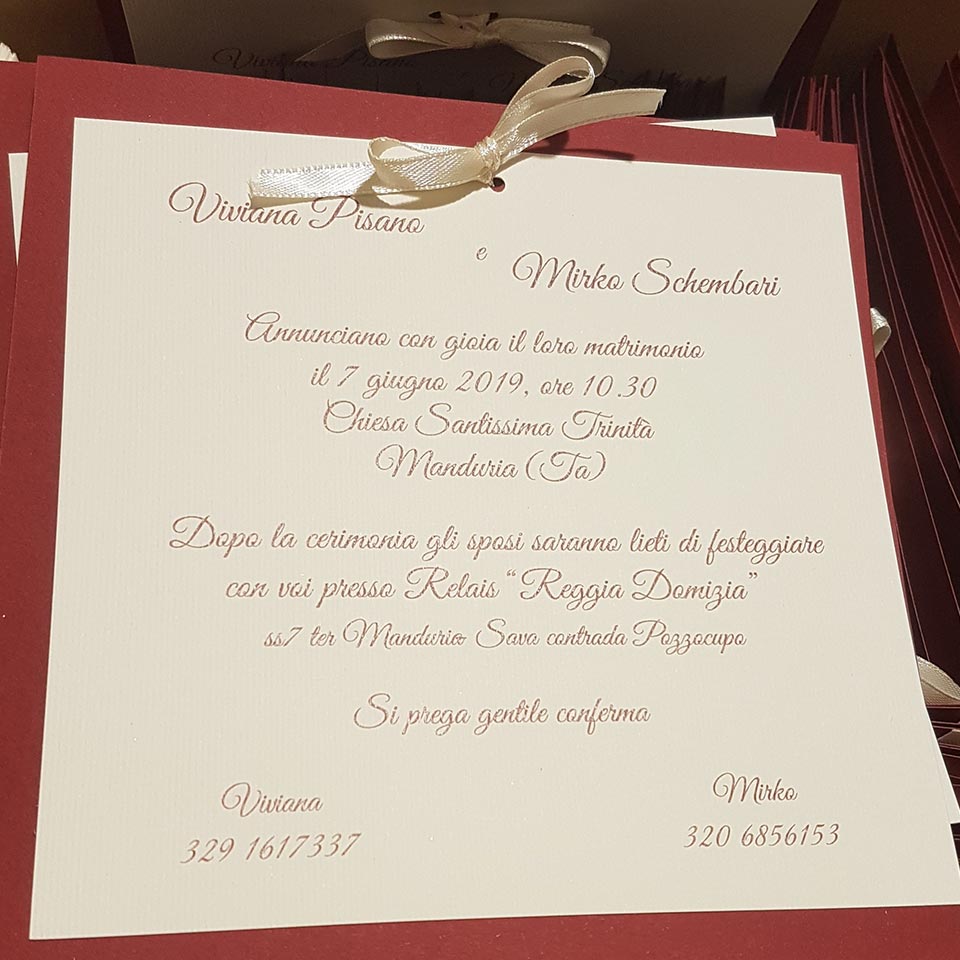 Viviana Pisano
e
Mirko Schembari
Annunciano con gioia il loro matrimonio
il 7 giugno 2019, ore 10.30
Chiesa Santissima Trinità
Manduria (Ta)
Dopo la cerimonia gli sposi saranno lieti di festeggiare
con voi presso Relais “Reggia Domizia”
ss7 ter Manduria Sava contrada Pozzocupo
Si prega gentile conferma
Viviana
329 1617337
Mirko
320 6856153
Viviana Pisano